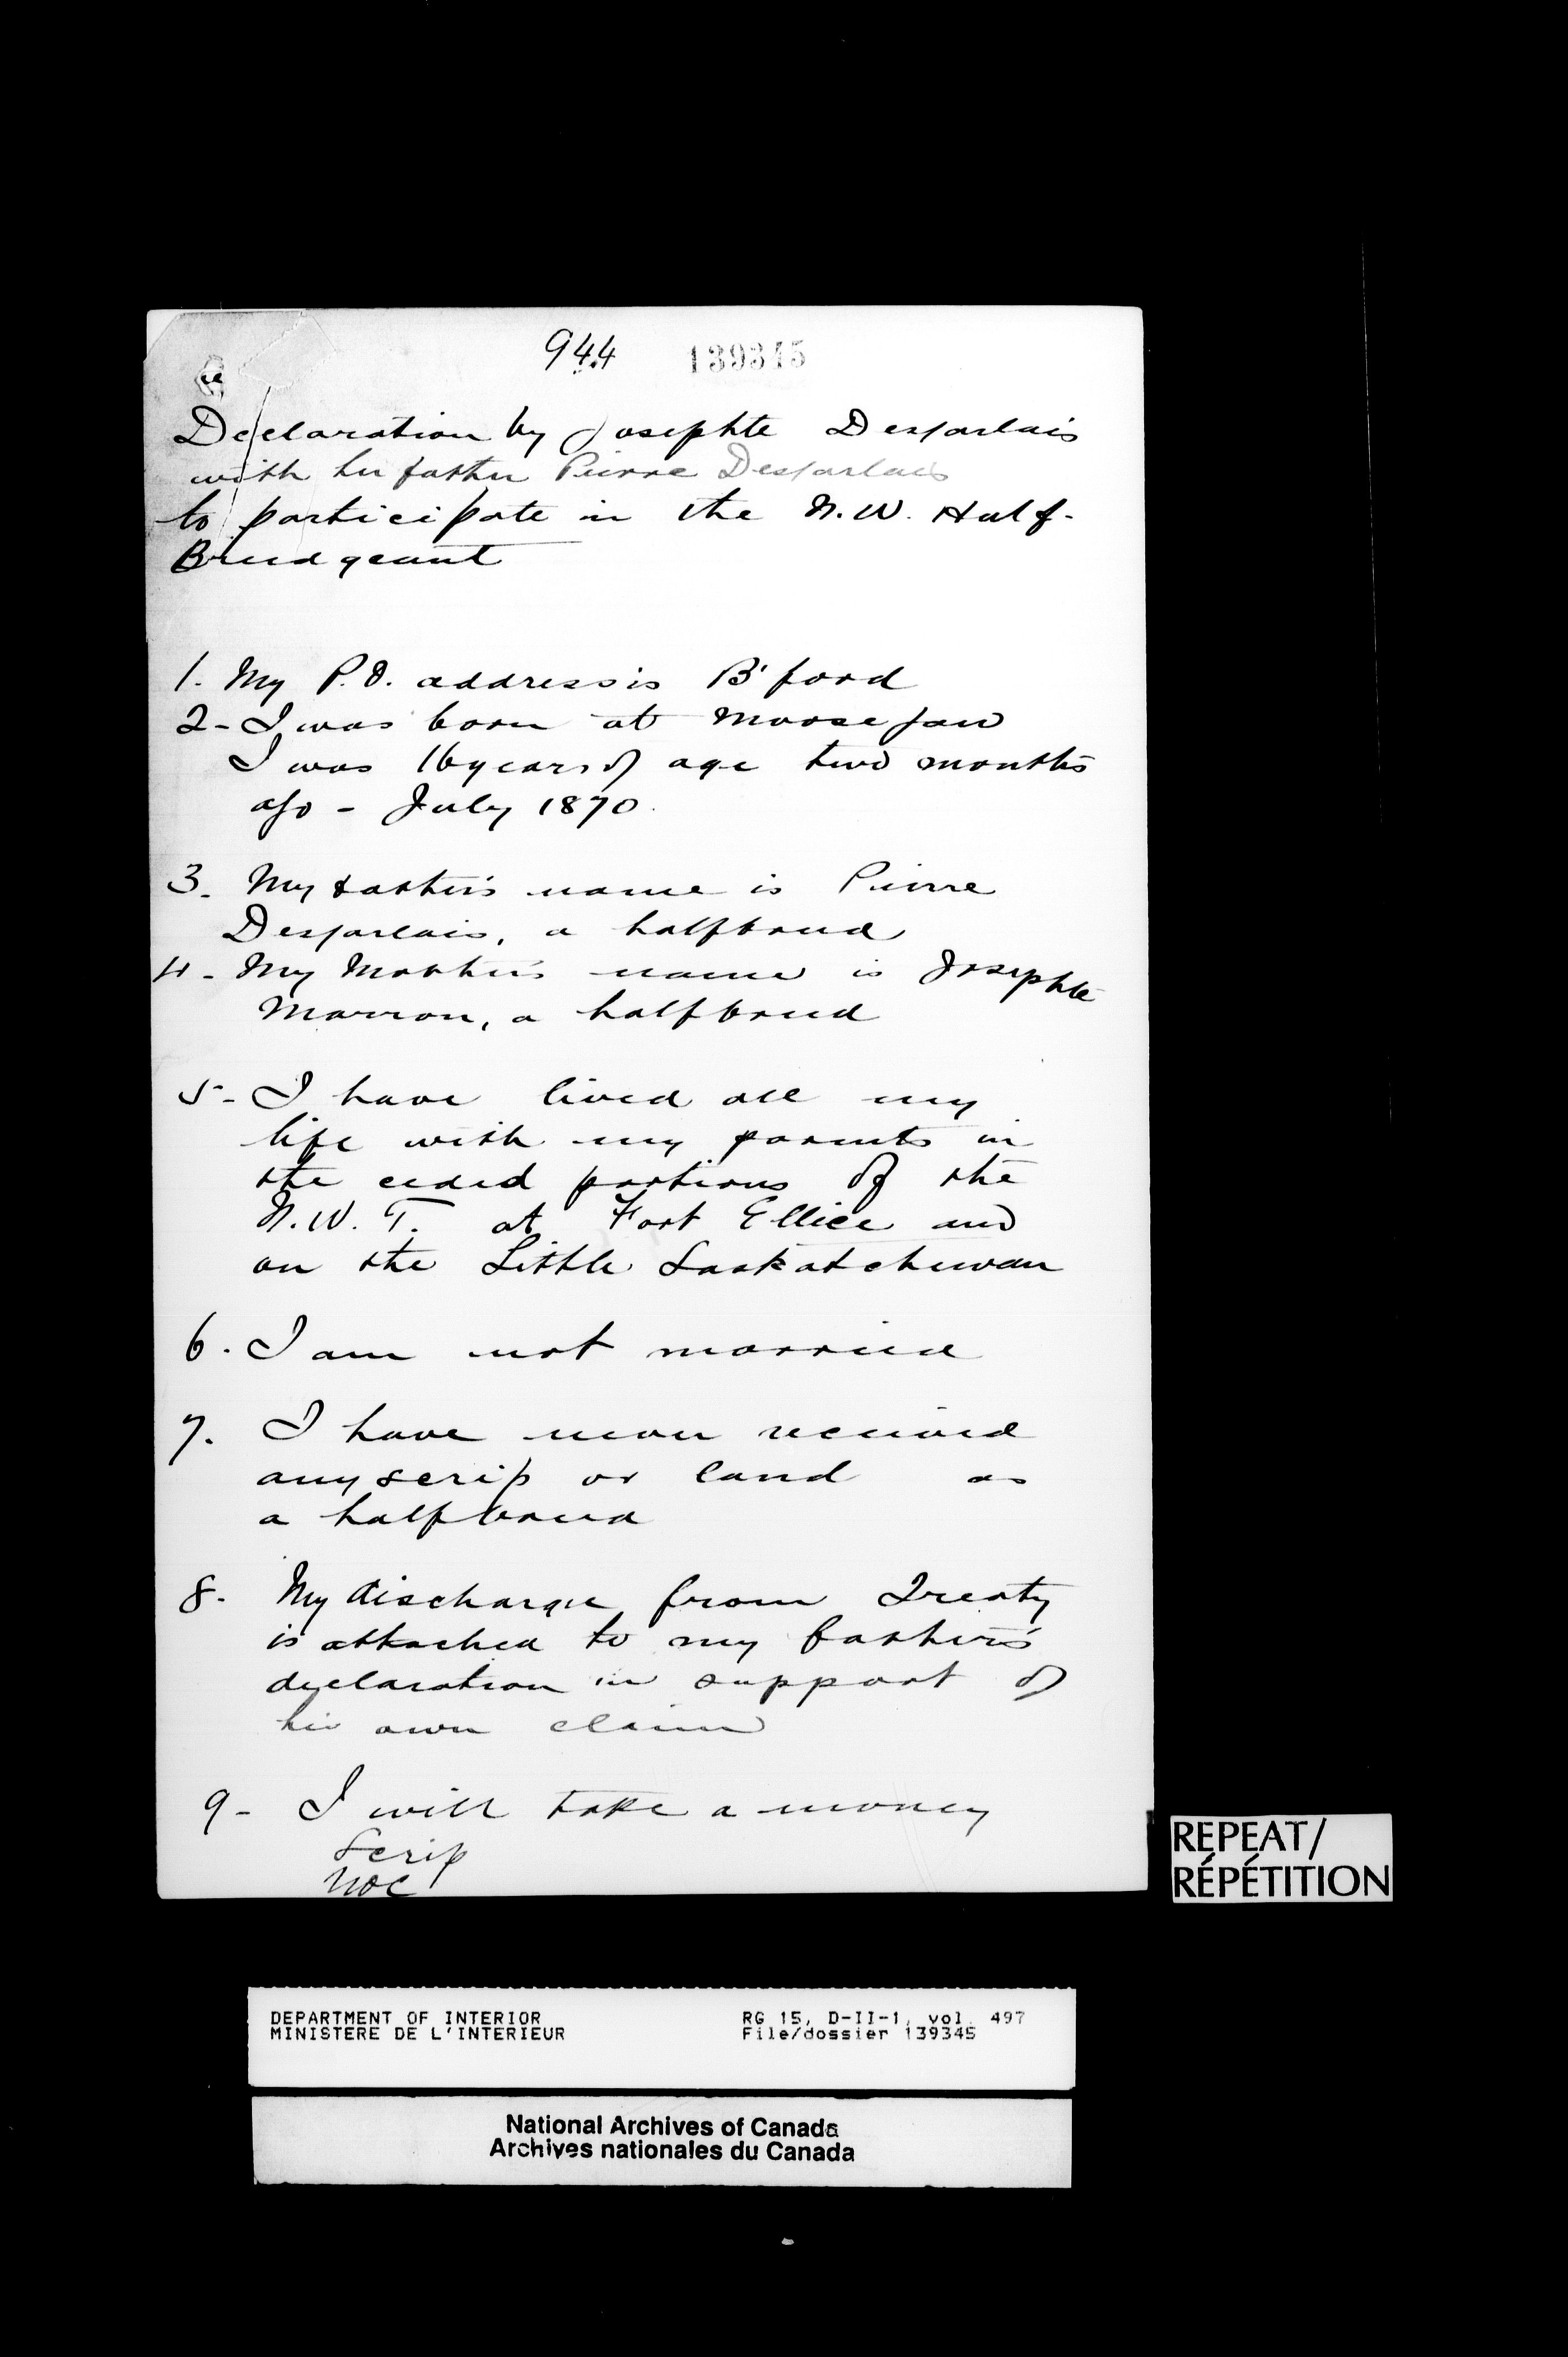 944 139345
Declaration by Josephte Desjarlais
with her father Pierre Desjarlais
to participate in the N.W. Half-
Breed grant
1. My P.O. address is B'ford
2- I was born at Moose Jaw
I was 16 years of age two months
ago - July 1870.
3. My father's name is Pierre
Desjarlais, a halfbreed
4- My Mother's name is Josephte
Marron, a halfbreed
5- I have lived all my
life with my parents in
the ceded portions of the
N.W.T. at Fort Ellice and
on the Little Saskatchewan
6. I am not married
7. I have never received
any scrip or land as
a halfbreed
8. My discharge from Treaty
is attached to my father's
declaration in support of
his own claim
9- I will take a money
Scrip
REPEAT/
RÉPÉTITION
DEPARTMENT OF INTERIOR RG 15, D-II-1, vol. 497
MINISTERE DE L'INTERIEUR File/dossier 139345
National Archives of Canada
Archives nationales du Canada